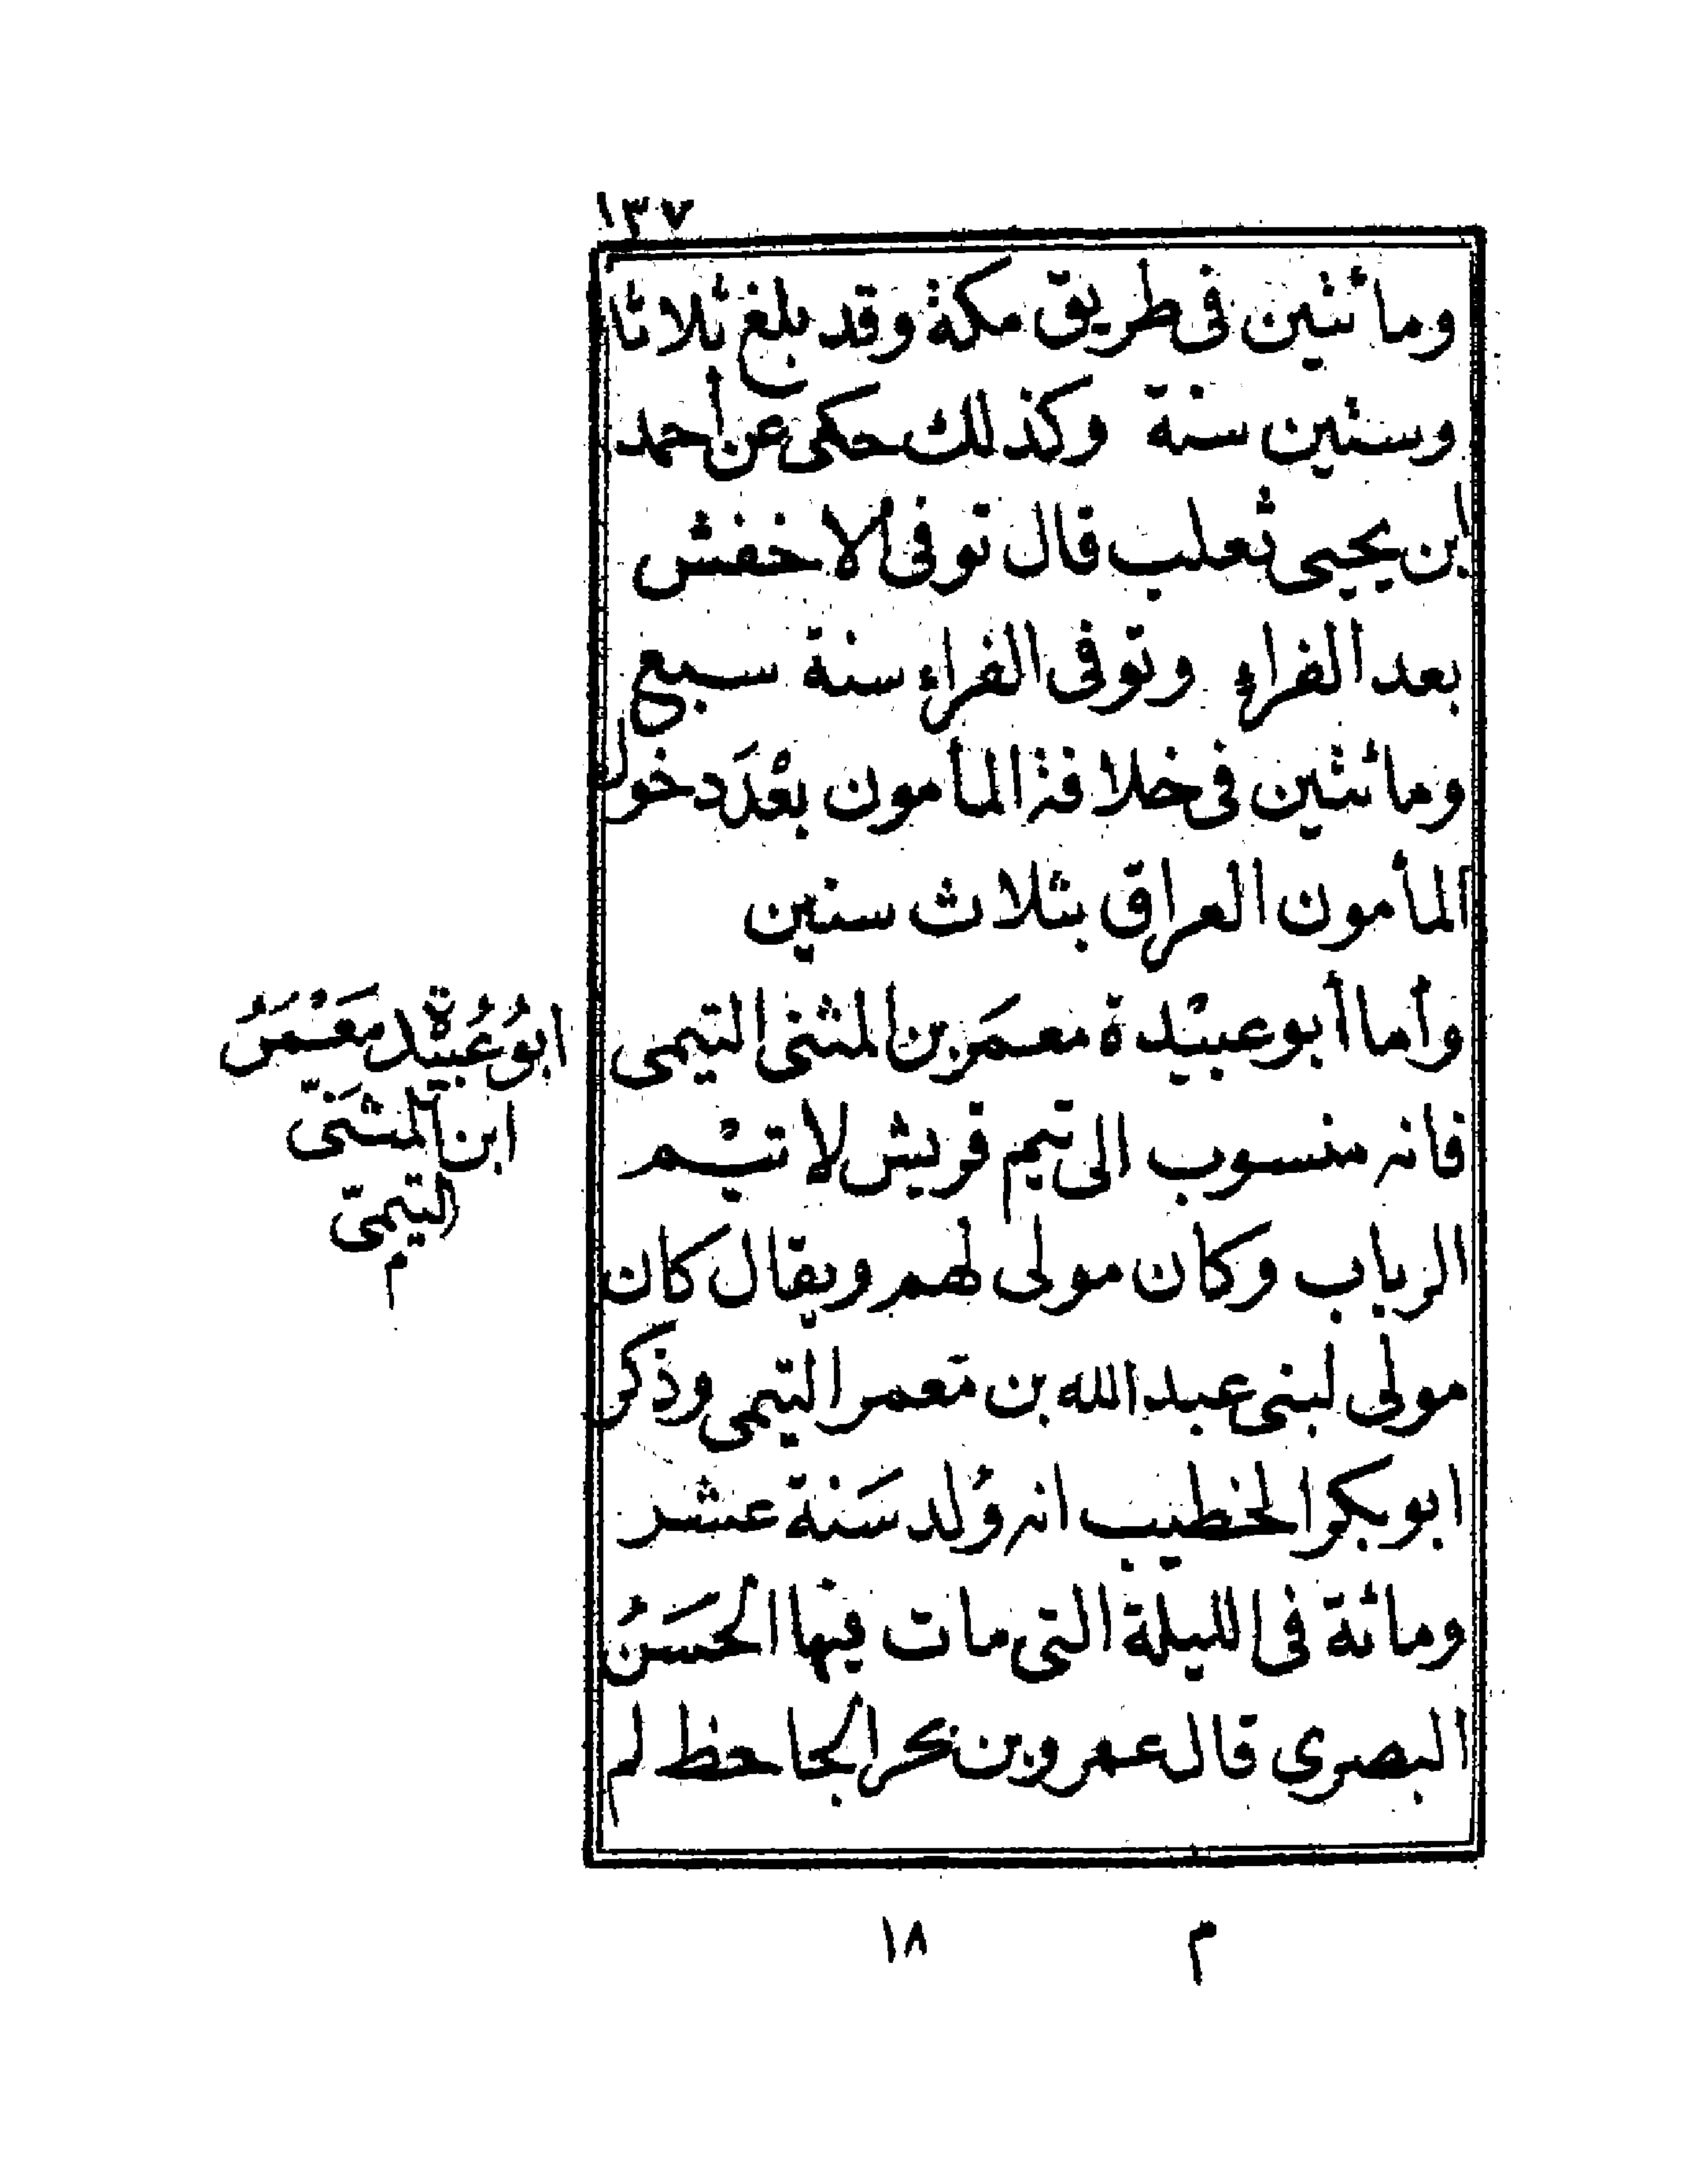 ١٣٧
ومائتين فى طريق مكة وقد بلغ ثلاثا
وستين سنة وكذلك حكى عن أحمد
ابن يحيى ثعلب قال توفى الاخفش
بعد الفراء وتوفى الفراء سنة سبع
ومائتين فى خلافة المأمون بعْدَ دخول
المأمون العراق بثلاث سنين
وأما أبو عبيْدة معمَر بن المثنى التيمى
فانه منسوب الى تيم قريش لا تيْم
الرباب وكان مولى لهم ويقال كان
مولى لبنى عبد الله بن مَعمر التيمى وذكر
ابو بكر الخطيب انه وُلد سَنة عشر
ومائة فى الليلة التى مات فيها الحسَنُ
البصرى قال عمرو بن بحر الجاحظ لم
ابوُ عُبيْدة مَعْمَرُ
ابن المثَنىّ
التيمىّ
م
م ١٨